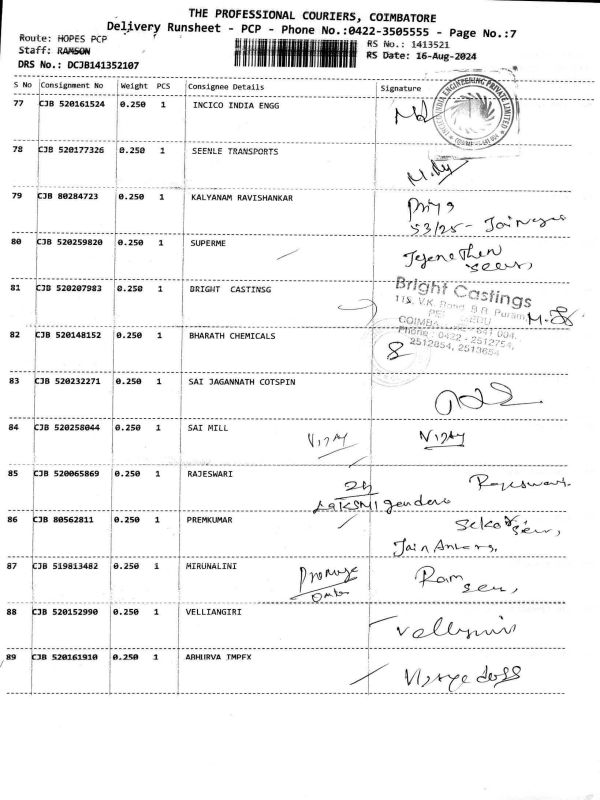 THE PROFESSIONAL COURIERS, COIMBATORE
Delivery Runsheet - PCP - Phone No.:0422-3505555 - Page No.:7
Route: HOPES PCP
RS No.: 1413521
Staff: RAMSON
RS Date: 16-Aug-2024
DRS No.: DCJB141352107
S No Consignment No Weight PCS Consignee Details Signature
77 CJB 520161524 0.250 1 INCICO INDIA ENGG
78 CJB 520177326 0.250 1 SEENLE TRANSPORTS
79 CJB 80284723 0.250 1 KALYANAM RAVISHANKAR Priya
53/25 -
80 CJB 520259820 0.250 1 SUPERME
81 CJB 520207983 0.250 1 BRIGHT CASTINSG Bright Castings
115, V.K. Road, B.R. Puram,
COIMBA 641 004.
Phone: 0422 - 2512754,
2512854, 2513654
82 CJB 520148152 0.250 1 BHARATH CHEMICALS
83 CJB 520232271 0.250 1 SAI JAGANNATH COTSPIN
84 CJB 520258044 0.250 1 SAI MILL Vijay Vijay
85 CJB 520065869 0.250 1 RAJESWARI Rajeswari
86 CJB 80562811 0.250 1 PREMKUMAR
87 CJB 519813482 0.250 1 MIRUNALINI Ram
88 CJB 520152990 0.250 1 VELLIANGIRI
89 CJB 520161910 0.250 1 ABHURVA IMPEX